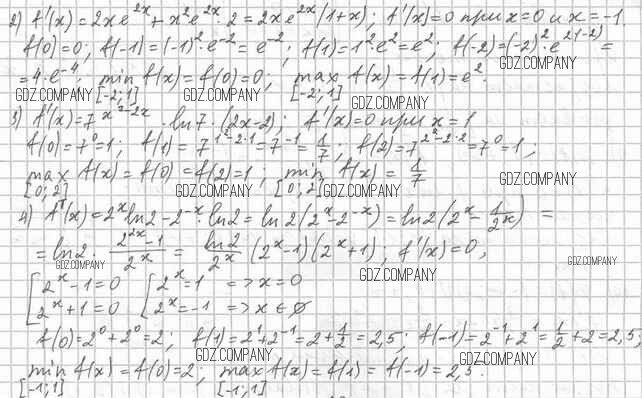 2) f'(x)=2xe^{2x}+x^2e^{2x}·2=2xe^{2x}(1+x); f'(x)=0 при x=0 и x=-1.
f(0)=0; f(-1)=(-1)^2·e^{-2}=e^{-2}; f(1)=1^2e^2=e^2; f(-2)=(-2)^2·e^{2(-2)}=
GDZ.COMPANY
=4·e^{-4}; min f(x)=f(0)=0; max f(x)=f(1)=e^2.
GDZ.COMPANY [-2;1] GDZ.COMPANY [-2;1] GDZ.COMPANY
3) f'(x)=7^{x^2-2x}·ln7·(2x-2); f'(x)=0 при x=1
f(0)=7^0=1; f(1)=7^{1^2-2·1}=7^{-1}=1/7; f(2)=7^{2^2-2·2}=7^0=1;
max f(x)=f(0)=f(2)=1; min f(x)=1/7
[0;2] GDZ.COMPANY [0;2] GDZ.COMPANY GDZ.COMPANY
4) f'(x)=2^x ln2-2^{-x}·ln2=ln2(2^x-2^{-x})=ln2(2^x-1/2^x)=
=ln2·(2^{2x}-1)/2^x=ln2/2^x(2^x-1)(2^x+1); f'(x)=0,
GDZ.COMPANY GDZ.COMPANY GDZ.COMPANY
[2^x-1=0 [2^x=1 =>x=0
2^x+1=0 2^x=-1 =>x∈∅
f(0)=2^0+2^0=2; f(1)=2^1+2^{-1}=2+1/2=2,5; f(-1)=2^{-1}+2^1=1/2+2=2,5;
GDZ.COMPANY GDZ.COMPANY
min f(x)=f(0)=2; max f(x)=f(1)=f(-1)=2,5.
[-1;1] [-1;1]